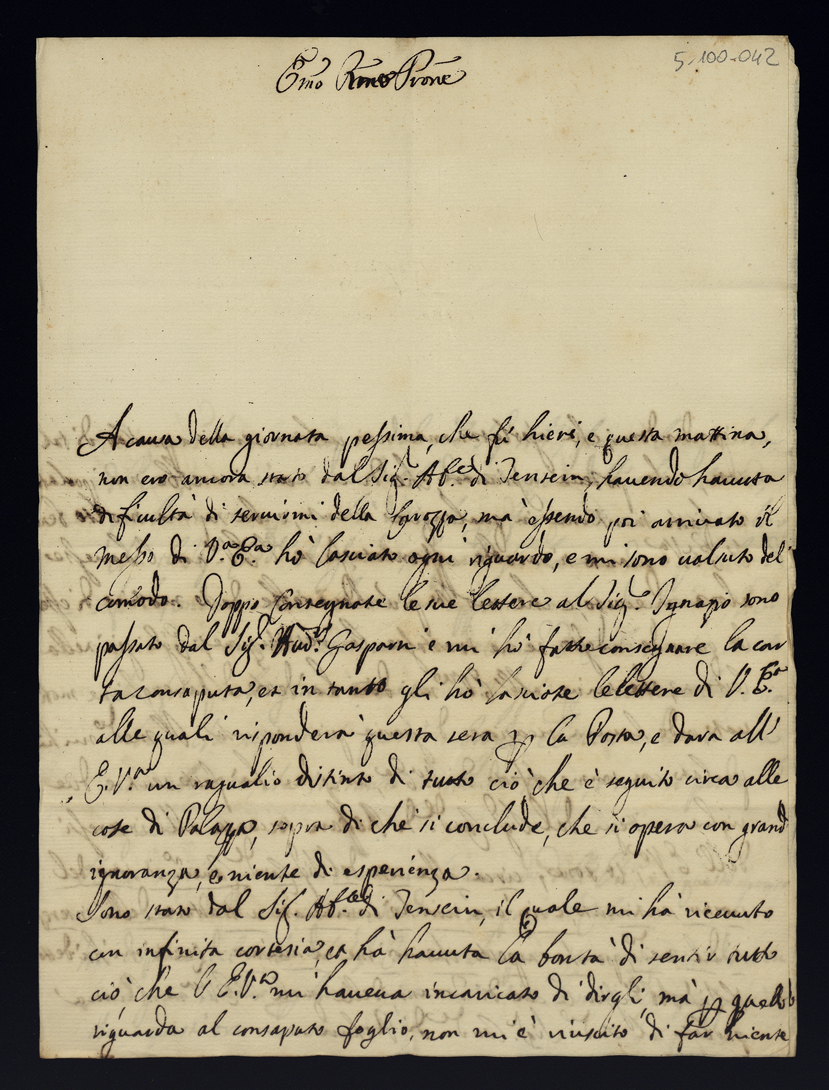 5-100-042
Emo Rmo Prone
A causa della giornata pessima, che fù hieri, e questa mattina,
non ero ancora stato dal Sig.r Ab.e di Tensein, havendo havuta
dificultà di servirmi della Carozza, mà essendo poi arrivato il
messo di V.a E.a hò lasciato ogni riguardo, e mi sono valsuto del
comodo. Doppo consegnate le sue lettere al Sig.r Ignazio sono
passato dal Sig.r Aud.re Gasparri e mi hò fatto consegnare la car
ta consaputa, et in tanto gli hò lasciate le lettere di V. E.a
alle quali risponderà questa sera p la Posta, e dara all'
E. V.a un raguaglio distinto di tutto ciò che è seguito circa alle
cose di Palazzo, sopra di che si conclude, che si opera con grand
ignoranza, e niente di esperienza.
Sono stato dal Sig.r Ab.e di Tensein, il quale mi hà ricevuto
con infinita cortesia, et hà havuta la bontà di sentir tutto
ciò, che l'E.V.a mi haveva incaricato di dirgli, mà p quello
riguarda al consaputo foglio, non mi è riuscito di far niente